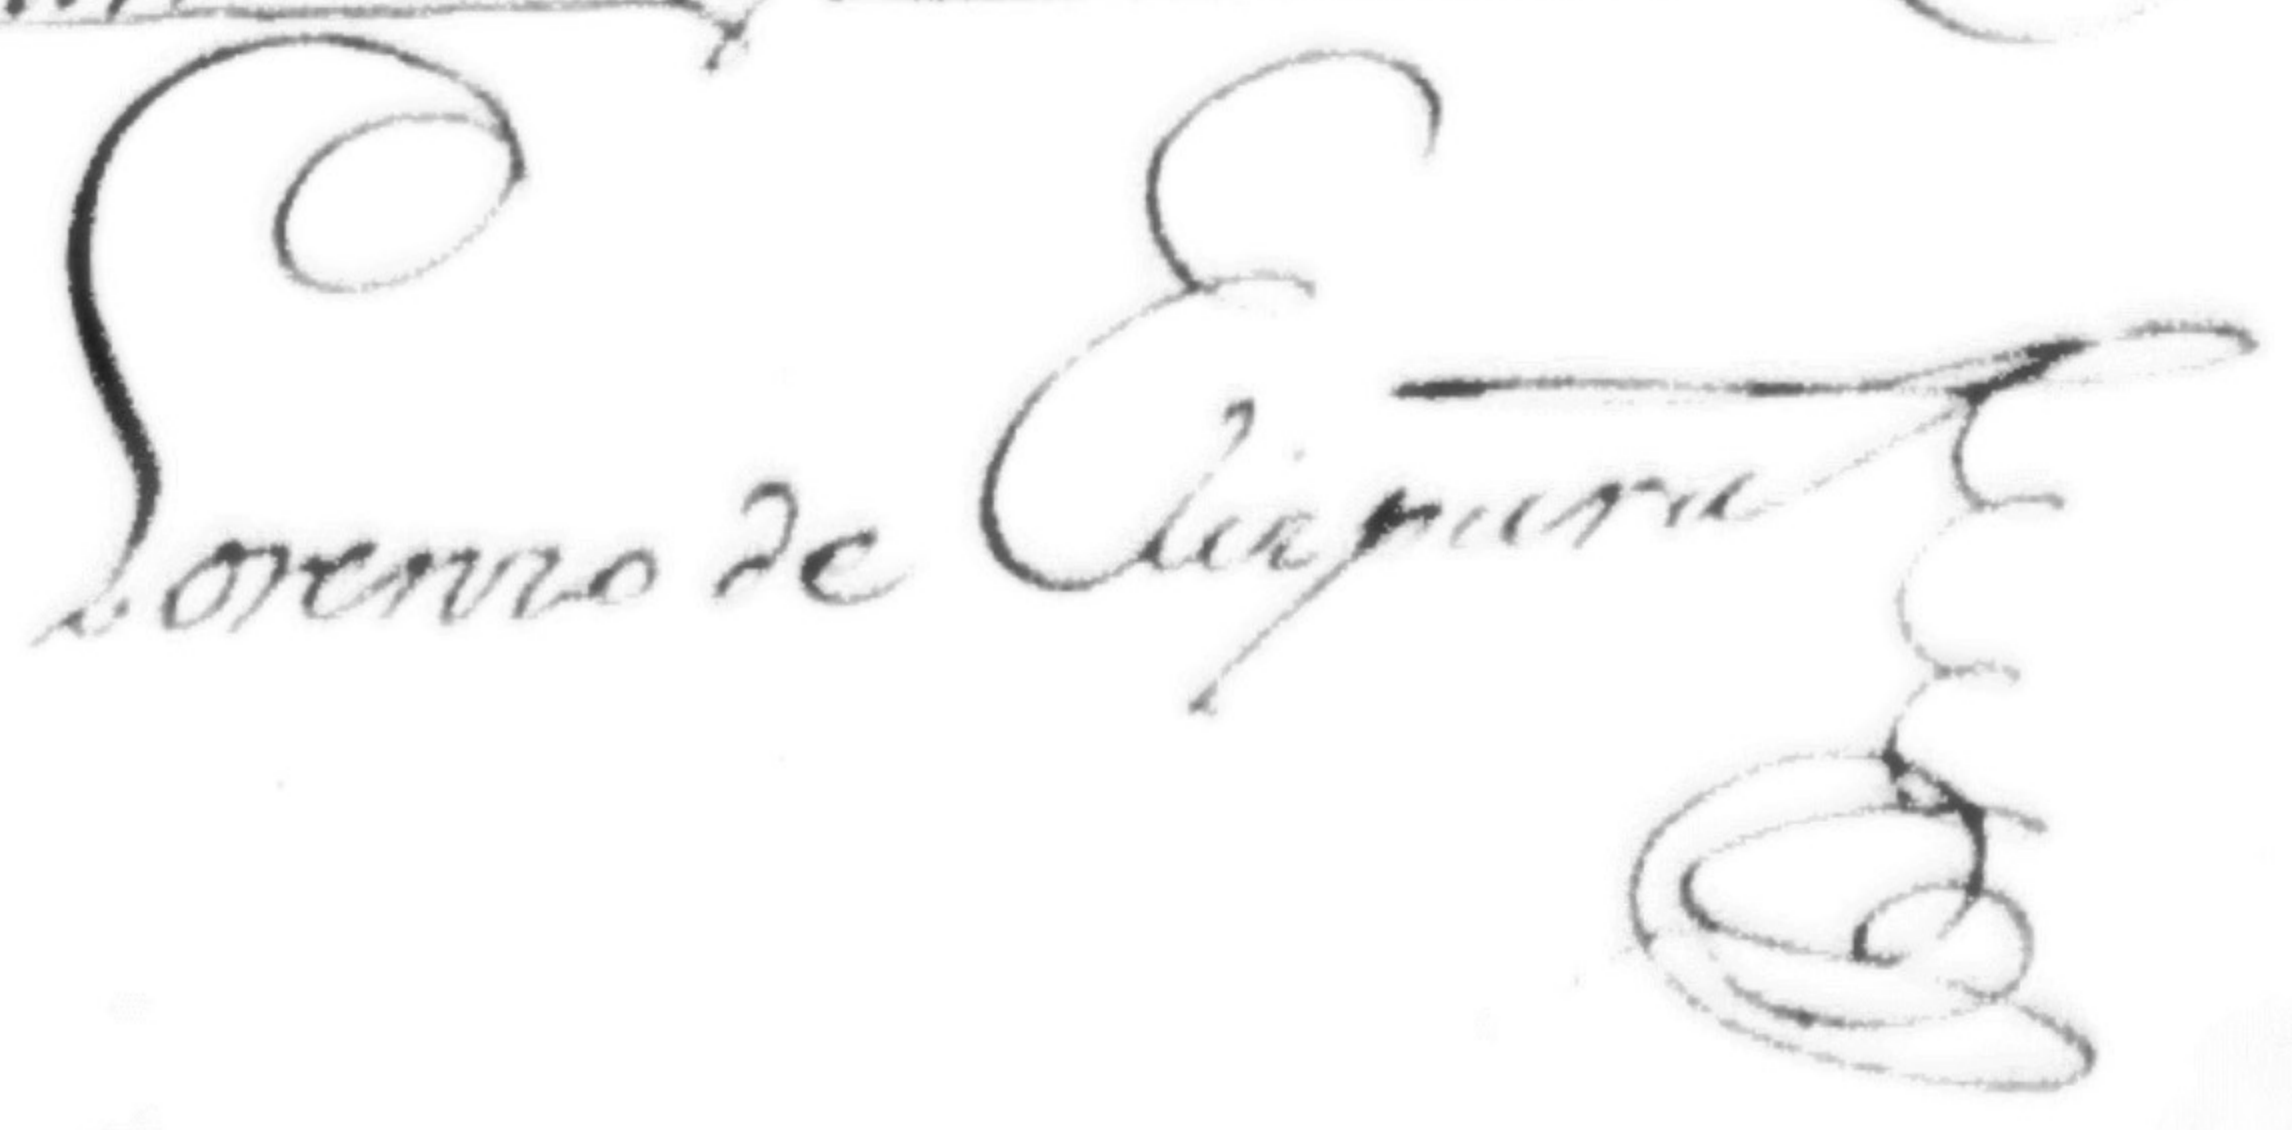 Lorenzo de Eleizpuru